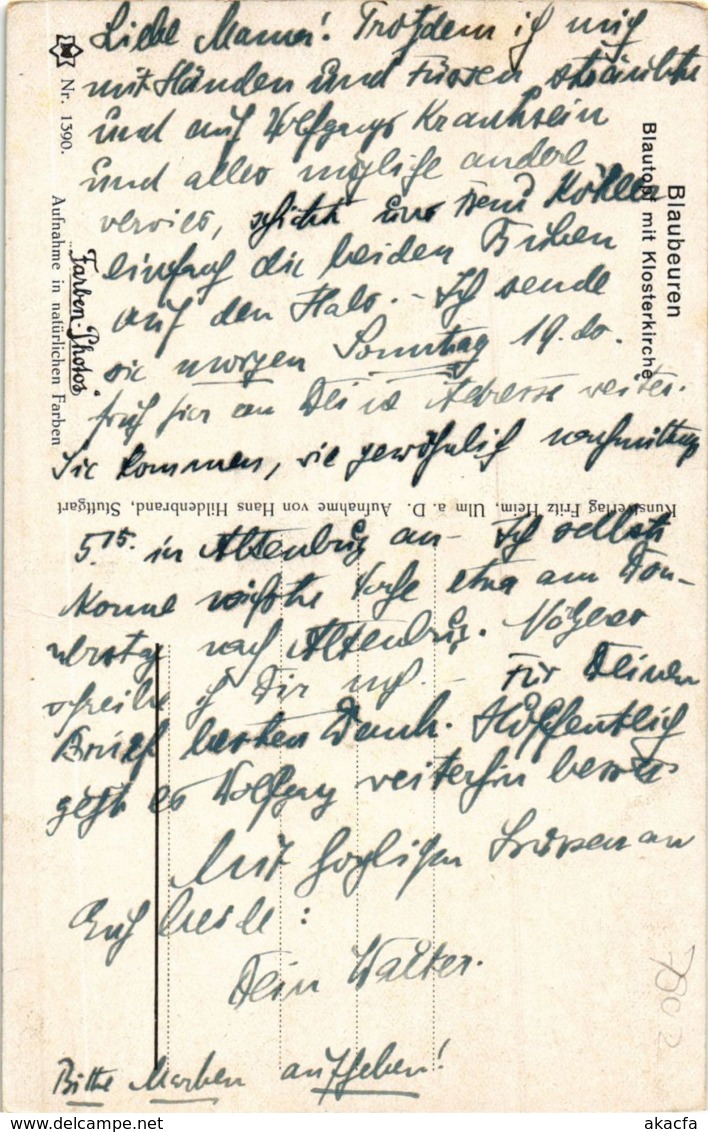 Liebe Mama! Trotzdem ich mich
mit Händen und Füssen sträubte
und auf Wolfgangs Kranksein
und alles mögliche andere
verwies, schickt uns Frau Köhler
einfach die beiden Buben
auf den Hals. - Ich sende
sie morgen Sonntag 19. ds.
früh hier an Deine Adresse weiter.
Sie kommen, wie gewöhnlich nachmittags
5.15. in Altenburg an - Ich selbst
komme nächste Woche etwa am Don-
nerstag nach Altenburg. Näheres
schreibe ich Dir noch. - Für Deinen
Brief besten Dank. Hoffentlich
geht es Wolfgang weiterhin besser
Mit herzlichen Grüssen an
Euch beide:
Dein Walter.
Bitte Marken aufheben!
Nr. 1390.
Aufnahme in natürlichen Farben
"Farben-Photos"
Blaubeuren
Blautopf mit Klosterkirche
Kunstverlag Fritz Heim, Ulm a. D. Aufnahme von Hans Hildenbrand, Stuttgart
akacfa